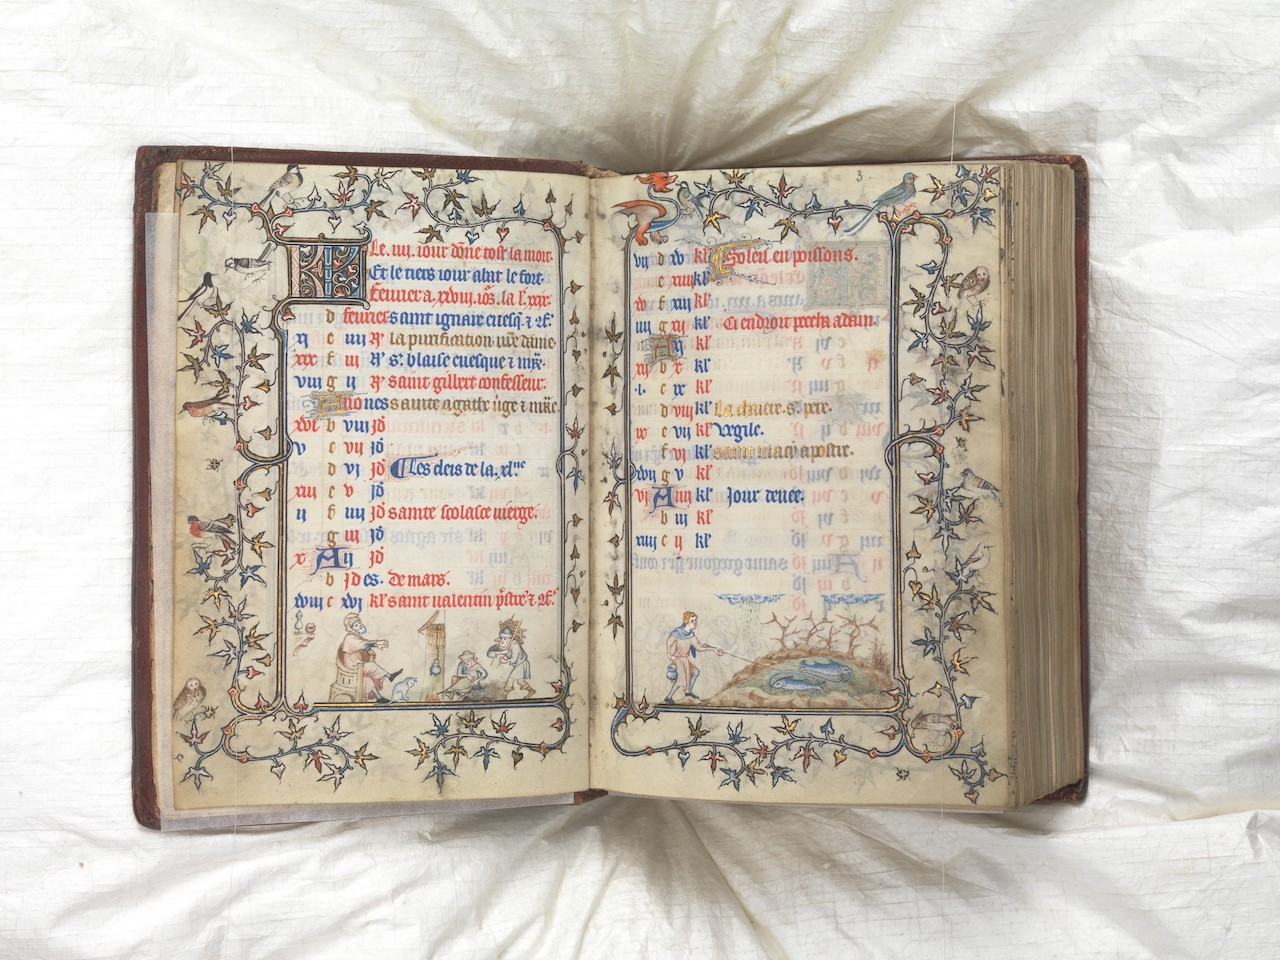 Le .iiij. iour dõne tost la mort.
Et le tiers iour abat le fort.
feurier a .xxviij. iõs. la l. xxix.
d feurier saint ignace euesq̃. &
xj e iiij saint la purification
xix f iij s. blaise euesque & m̃r.
viij g ij saint gilbert confesseur.
A nones sainte agathe uĩge & m̃re.
xvi b viij jd
v c vij jd
d vj jd Les cleis de la .xlme
xiij e v jd
ij f iiij jd sainte scolasce uierge.
g iij jd
x A ij jd
b jdes. de mars.
xviij c xvj kl saint ualentin p̃stre &
3.
vij d xv kl Soleil en poissons.
e xiiij kl
xv f xiij kl
iiij g xij kl Ci endroit pecha adam.
A xj kl
xij b x kl
.i. c ix kl
d viij kl la chaiere .s. pere.
ix e vij kl Vegile.
f vj kl saint macy apostre.
xvij g v kl
vj A iiij kl Jour
b iij kl
xiiij c ij kl